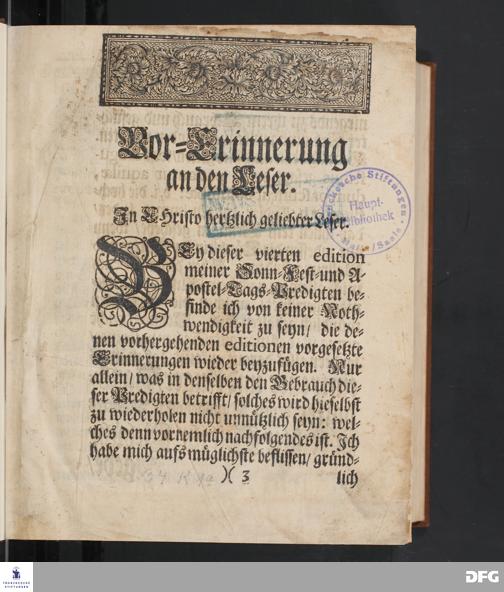 Vor-Erinnerung
an den Leser.
In CHristo hertzlich geliebter Leser.
BEy dieser vierten edition
meiner Sonn-Fest-und A-
postel-Tags-Predigten be-
finde ich von keiner Noth-
wendigkeit zu seyn/ die de-
nen vorhergehenden editionen vorgesetzte
Erinnerungen wieder beyzufügen. Nur
allein/ was in denselben den Gebrauch die-
ser Predigten betrifft/ solches wird hieselbst
zu wiederholen nicht unnützlich seyn: wel-
ches denn vornemlich nachfolgendes ist. Ich
habe mich aufs müglichste beflissen/ gründ-
)( 3 lich
Franckesche Stiftungen
Haupt-
Bibliothek
Halle/Saale
FRANCKESCHE
STIFTUNGEN
DFG